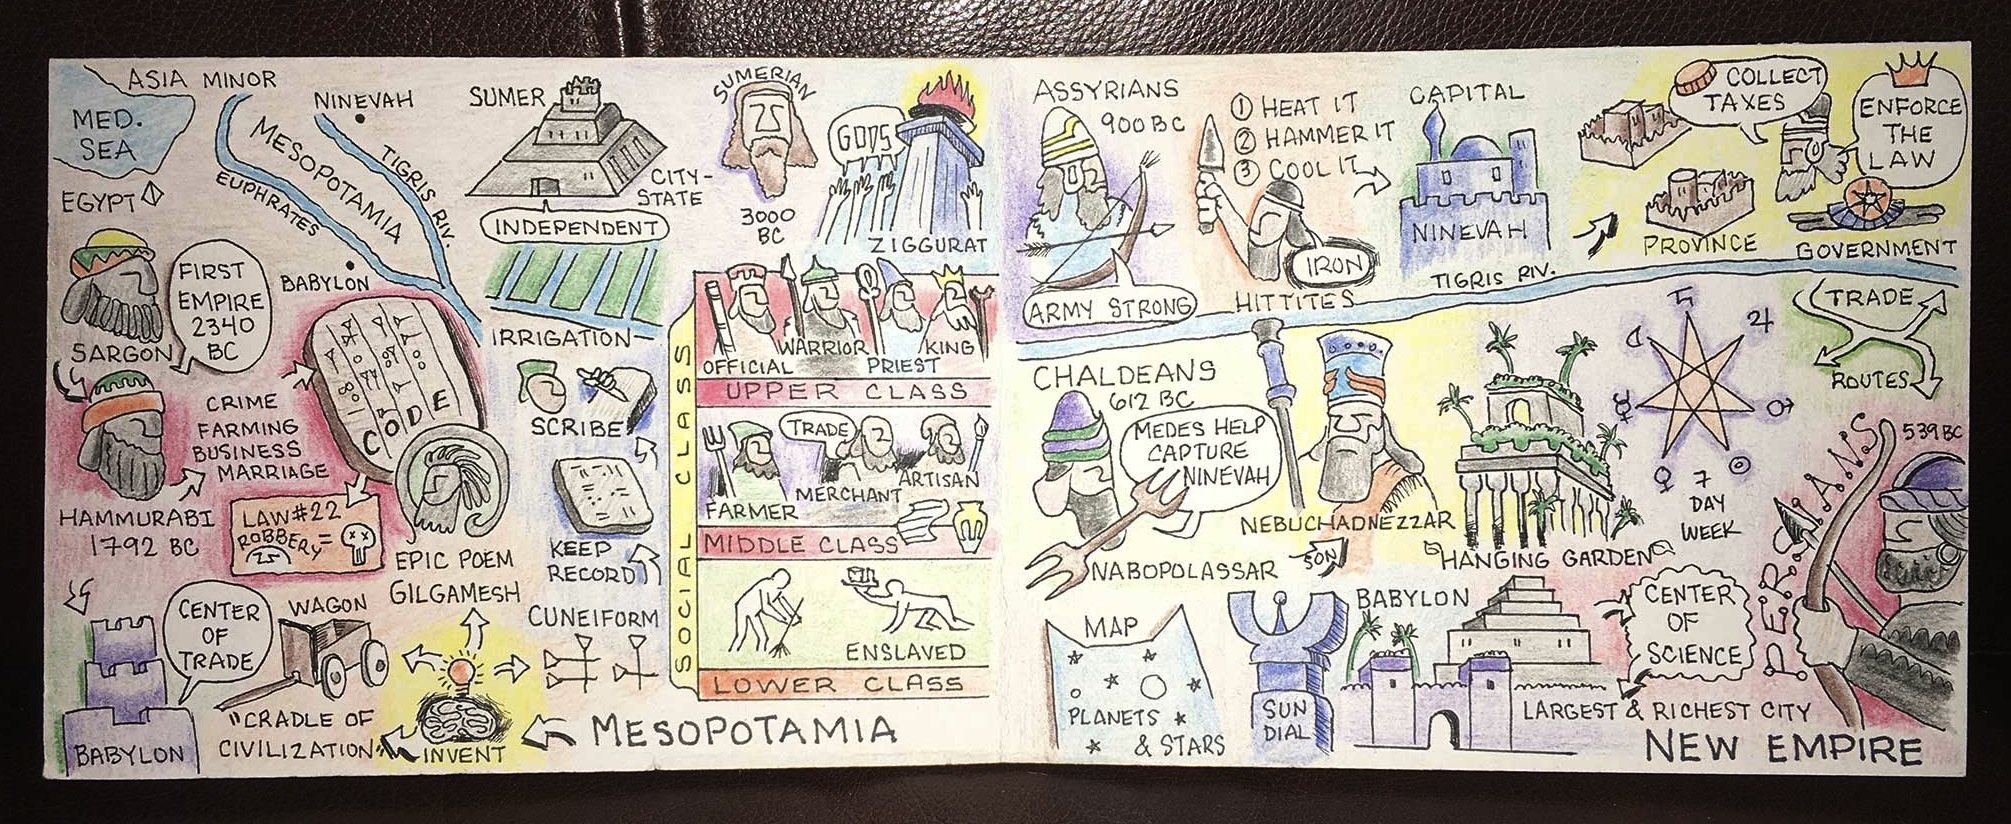 ASIA MINOR
MED.
SEA
EGYPT
NINEVAH
MESOPOTAMIA
TIGRIS RIV.
EUPHRATES
BABYLON
SARGON
FIRST
EMPIRE
2340
BC
HAMMURABI
1792 BC
CRIME
FARMING
BUSINESS
MARRIAGE
CODE
LAW #22
ROBBERY =
EPIC POEM
GILGAMESH
BABYLON
CENTER
OF
TRADE
WAGON
"CRADLE OF
CIVILIZATION"
INVENT
MESOPOTAMIA
SUMER
CITY-
STATE
INDEPENDENT
IRRIGATION
SCRIBE
KEEP
RECORD
CUNEIFORM
SUMERIAN
3000
BC
GODS
ZIGGURAT
SOCIAL CLASS
OFFICIAL
WARRIOR
PRIEST
KING
UPPER CLASS
FARMER
TRADE
MERCHANT
ARTISAN
MIDDLE CLASS
ENSLAVED
LOWER CLASS
ASSYRIANS
900 BC
ARMY STRONG
1 HEAT IT
2 HAMMER IT
3 COOL IT
IRON
HITTITES
CAPITAL
NINEVAH
TIGRIS RIV.
PROVINCE
COLLECT
TAXES
ENFORCE
THE
LAW
GOVERNMENT
CHALDEANS
612 BC
MEDES HELP
CAPTURE
NINEVAH
NABOPOLASSAR
SON
NEBUCHADNEZZAR
HANGING GARDEN
7
DAY
WEEK
TRADE
ROUTES
PERSIANS
539 BC
MAP
PLANETS
& STARS
SUN
DIAL
BABYLON
CENTER
OF
SCIENCE
LARGEST & RICHEST CITY
NEW EMPIRE